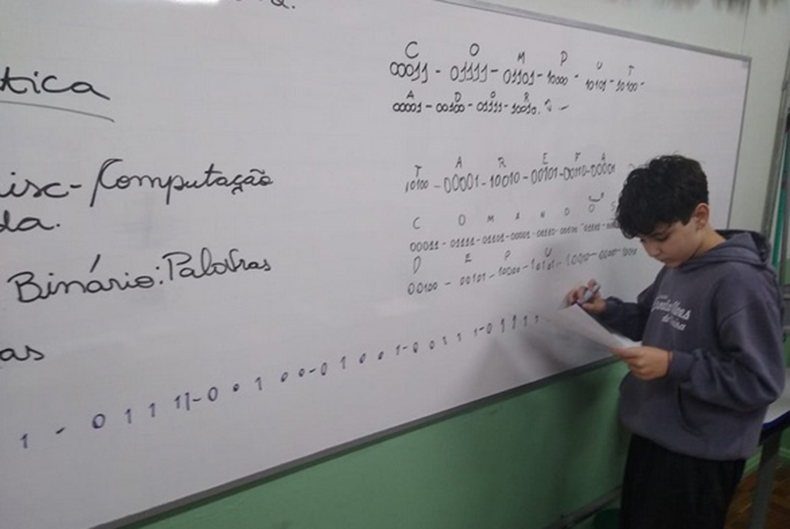 tica
isc-Computação
da.
Binário: Palavras
as
C O M P U T
00011 - 01111 - 01101 - 10000 - 10101 - 10100 -
A D O R
00001 - 00100 - 01111 - 10010.
T A R E F A
10100 - 00001 - 10010 - 00101 - 00110 - 00001
C O M A N D O S
00011 - 01111 - 01101 - 00001 - 01110 - 00100 - 01111 -
D E P U
00100 - 00101 - 10000 - 10101 - 10010 -
1 - 0 1 1 1 1 - 0 0 1 0 0 - 0 1 0 0 1 - 0 0 1 1 1 - 0 1 1 1 1